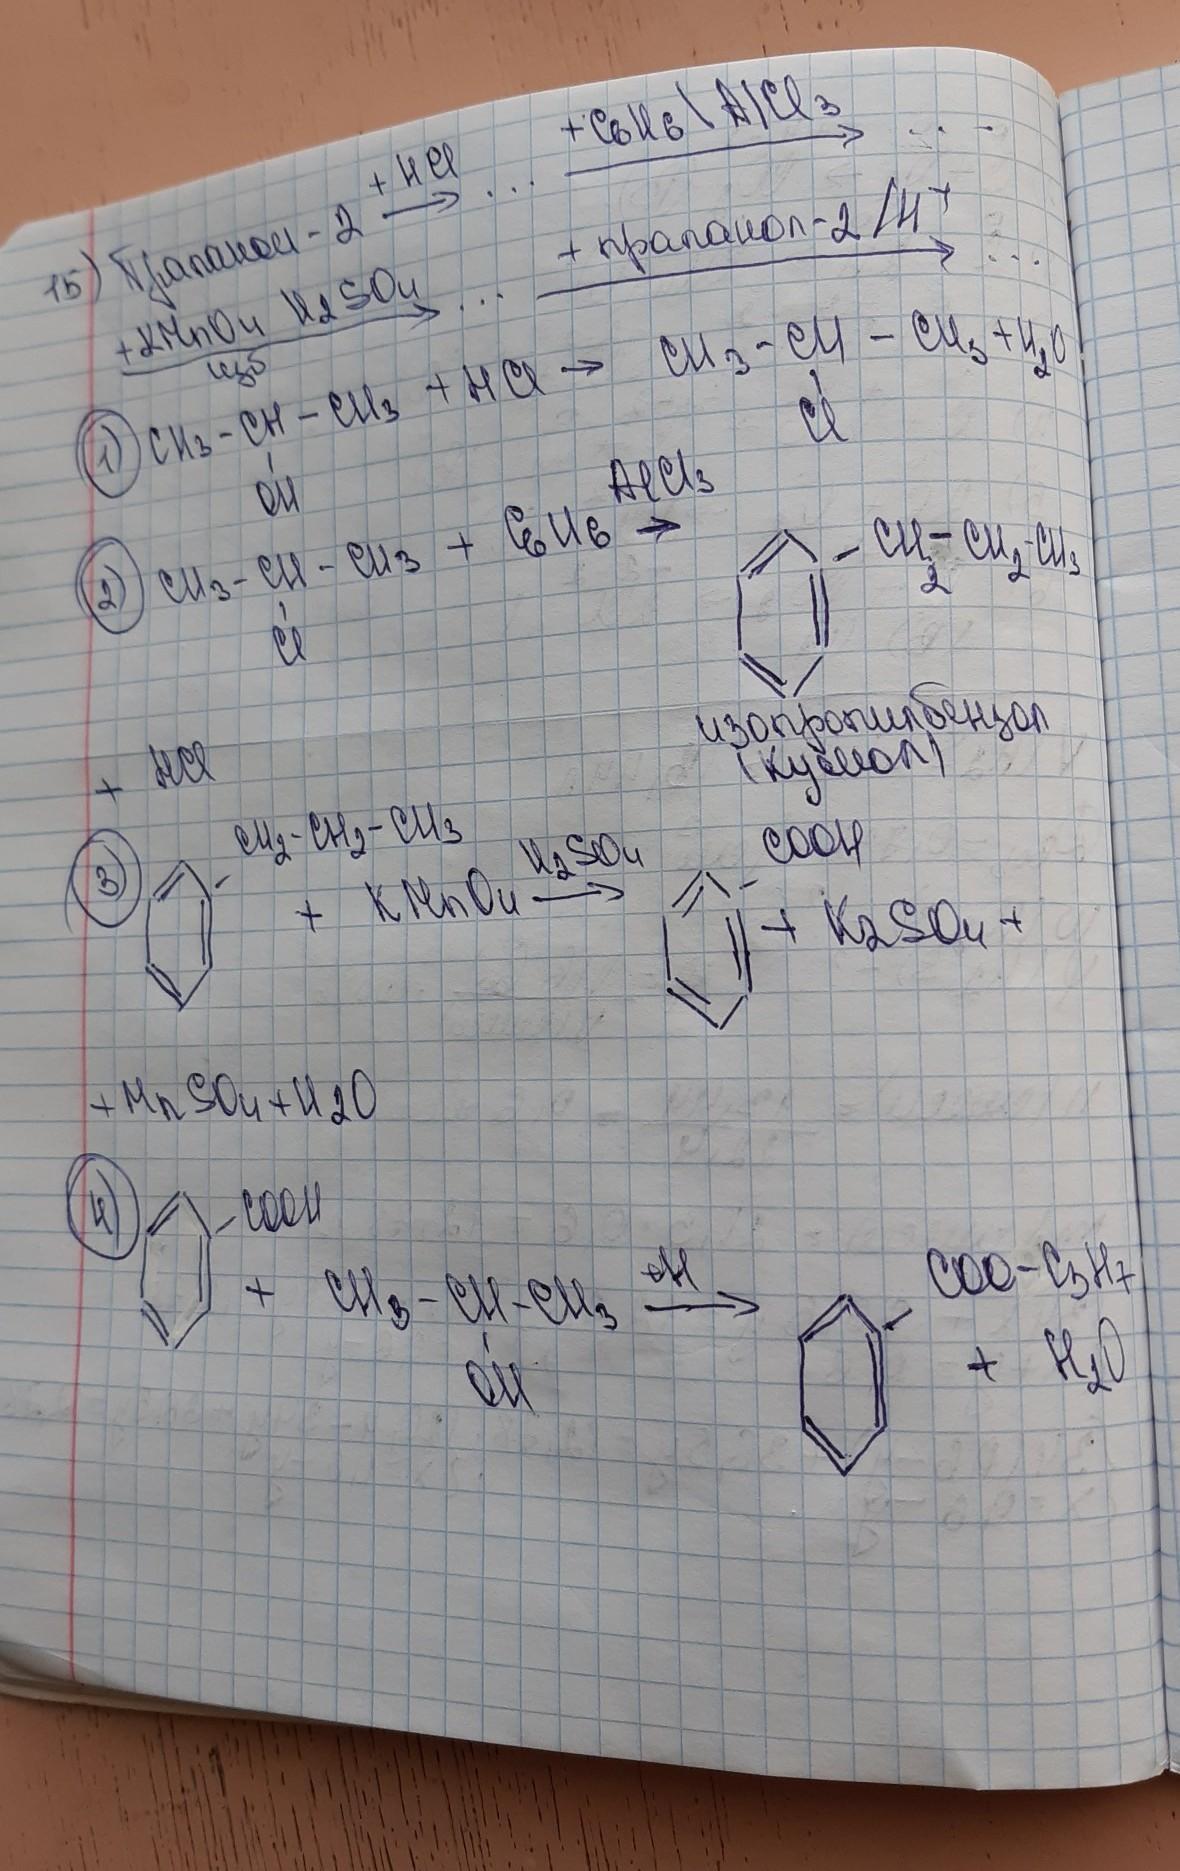 15) Пропанол-2 + HCl → ... + C6H6 \ AlCl3 → ...
+ KMnO4 H2SO4 изб → ... + пропанол-2 / H+ → ...
1) CH3 - CH - CH3 + HCl → CH3 - CH - CH3 + H2O
OH Cl
2) CH3 - CH - CH3 + C6H6 AlCl3 → - CH2 - CH2 - CH3
Cl
изопропилбензол
(кумол)
+ HCl
3) CH2 - CH2 - CH3 + KMnO4 H2SO4 → COOH + K2SO4 +
+ MnSO4 + H2O
4) COOH + CH3 - CH - CH3 → COO - C3H7 + H2O
OH